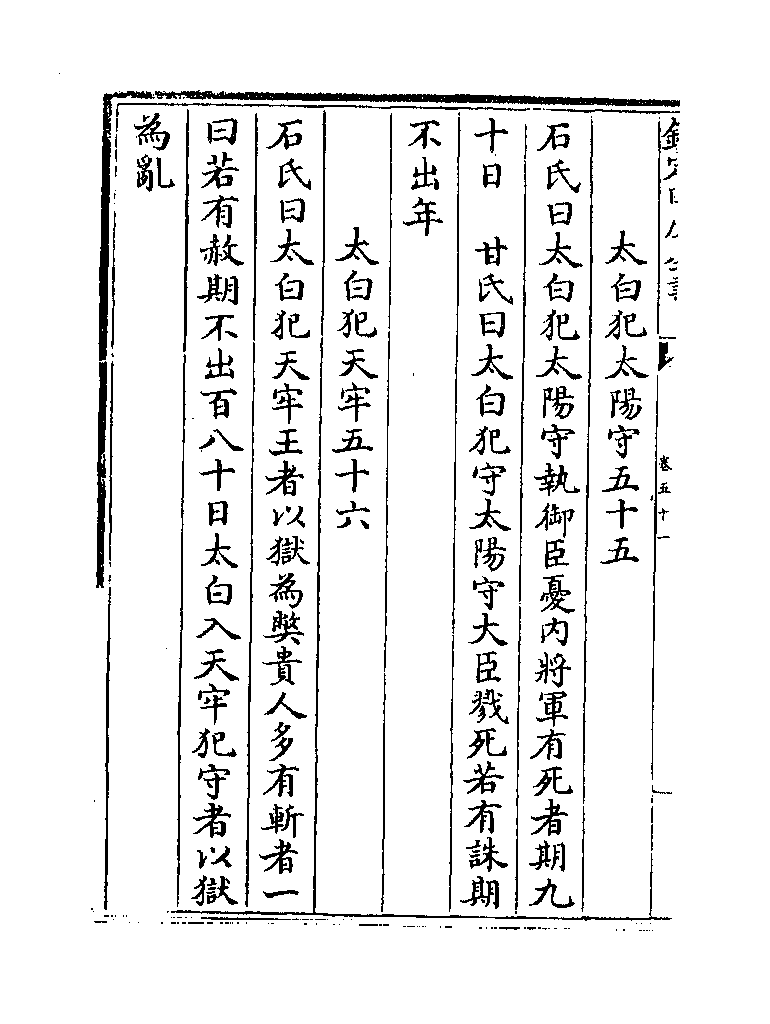 卷五十一
太白犯太陽守五十五
石氏曰太白犯太陽守執御臣憂内將軍有死者期九
十日　甘氏曰太白犯守太陽守大臣戮死若有誅期
不出年
太白犯天牢五十六
石氏曰太白犯天牢王者以獄為獘貴人多有斬者一
曰若有赦期不出百八十日太白入天牢犯守者以獄
為亂